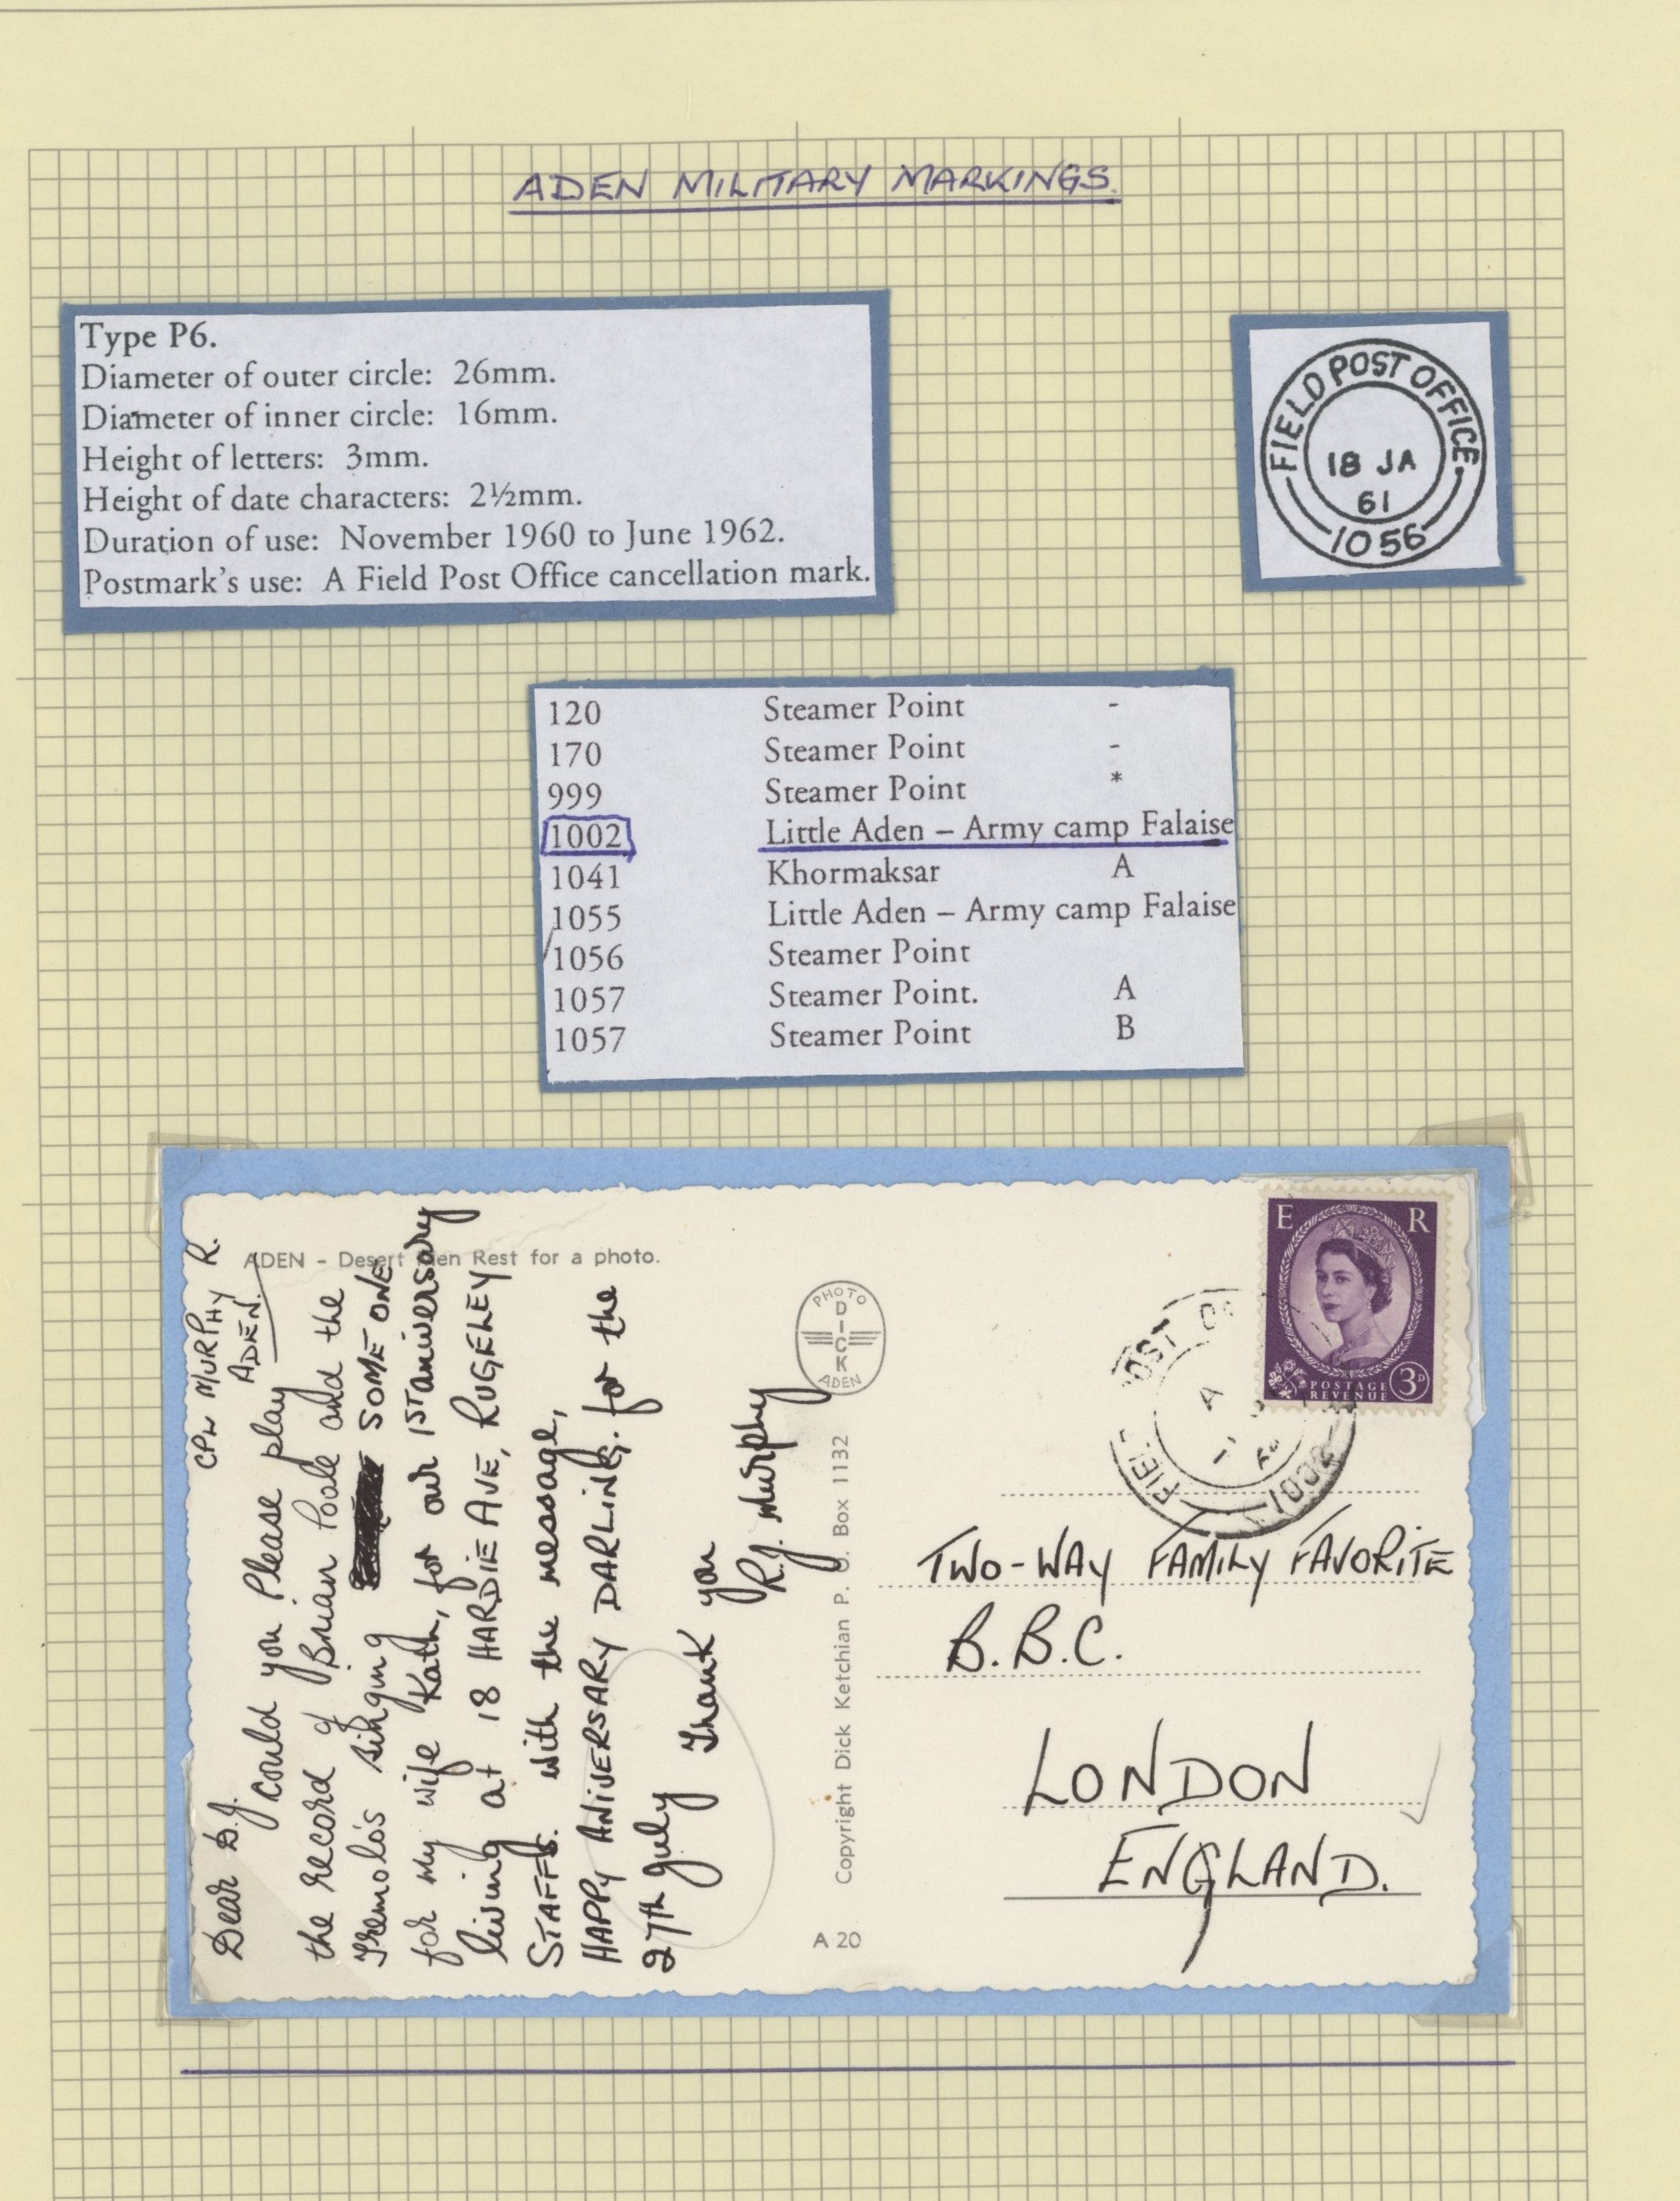 ADEN MILITARY MARKINGS.
Type P6.
Diameter of outer circle: 26mm.
Diameter of inner circle: 16mm.
Height of letters: 3mm.
Height of date characters: 2½mm.
Duration of use: November 1960 to June 1962.
Postmark's use: A Field Post Office cancellation mark.
FIELD POST OFFICE
18 JA
61
1056
120 Steamer Point -
170 Steamer Point -
999 Steamer Point *
1002 Little Aden – Army camp Falaise
1041 Khormaksar A
1055 Little Aden – Army camp Falaise
1056 Steamer Point
1057 Steamer Point. A
1057 Steamer Point B
ADEN - Desert Men Rest for a photo.
CPL MURPHY R.
ADEN.
Dear D.J.
could you Please play
the record of Brian Poole and the
Tremolo's singing SOME ONE
for my wife Kath, for our 1ST aniversary
living at 18 HARDIE AVE, RUGELEY
STAFFS. with the message,
HAPPY ANIVERSARY DARLING. for the
27th July Thank you
R.J. Murphy
PHOTO
DICK
ADEN
Copyright Dick Ketchian P. O. Box 1132
A 20
E R
POSTAGE
REVENUE
3D
1002
TWO-WAY FAMILY FAVORITE
B.B.C.
LONDON
ENGLAND.